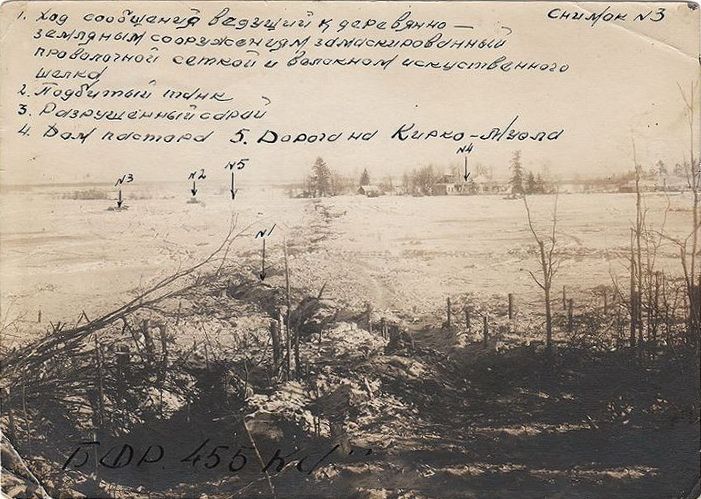 Снимок N3
1. Ход сообщения ведущий к деревянно —
земляным сооружениям замаскированный
проволочной сеткой и волокном искуственного
шелка
2. Подбитый танк
3. Разрушенный сарай
4. Дом пастора 5. Дорога на Кирко-Муола
N3
N2
N5
N4
N1